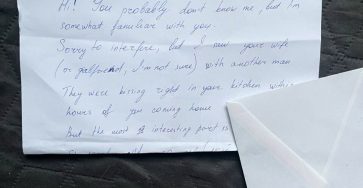 Hi! You probably don't know me, but I'm
somewhat familiar with you.
Sorry to interfere, but I saw your wife
(or girlfriend, I'm not sure) with another man
They were kissing right in your kitchen within
hours of you coming home
But the most interesting part is